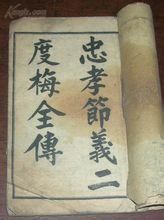 忠孝節義二
度梅全傳